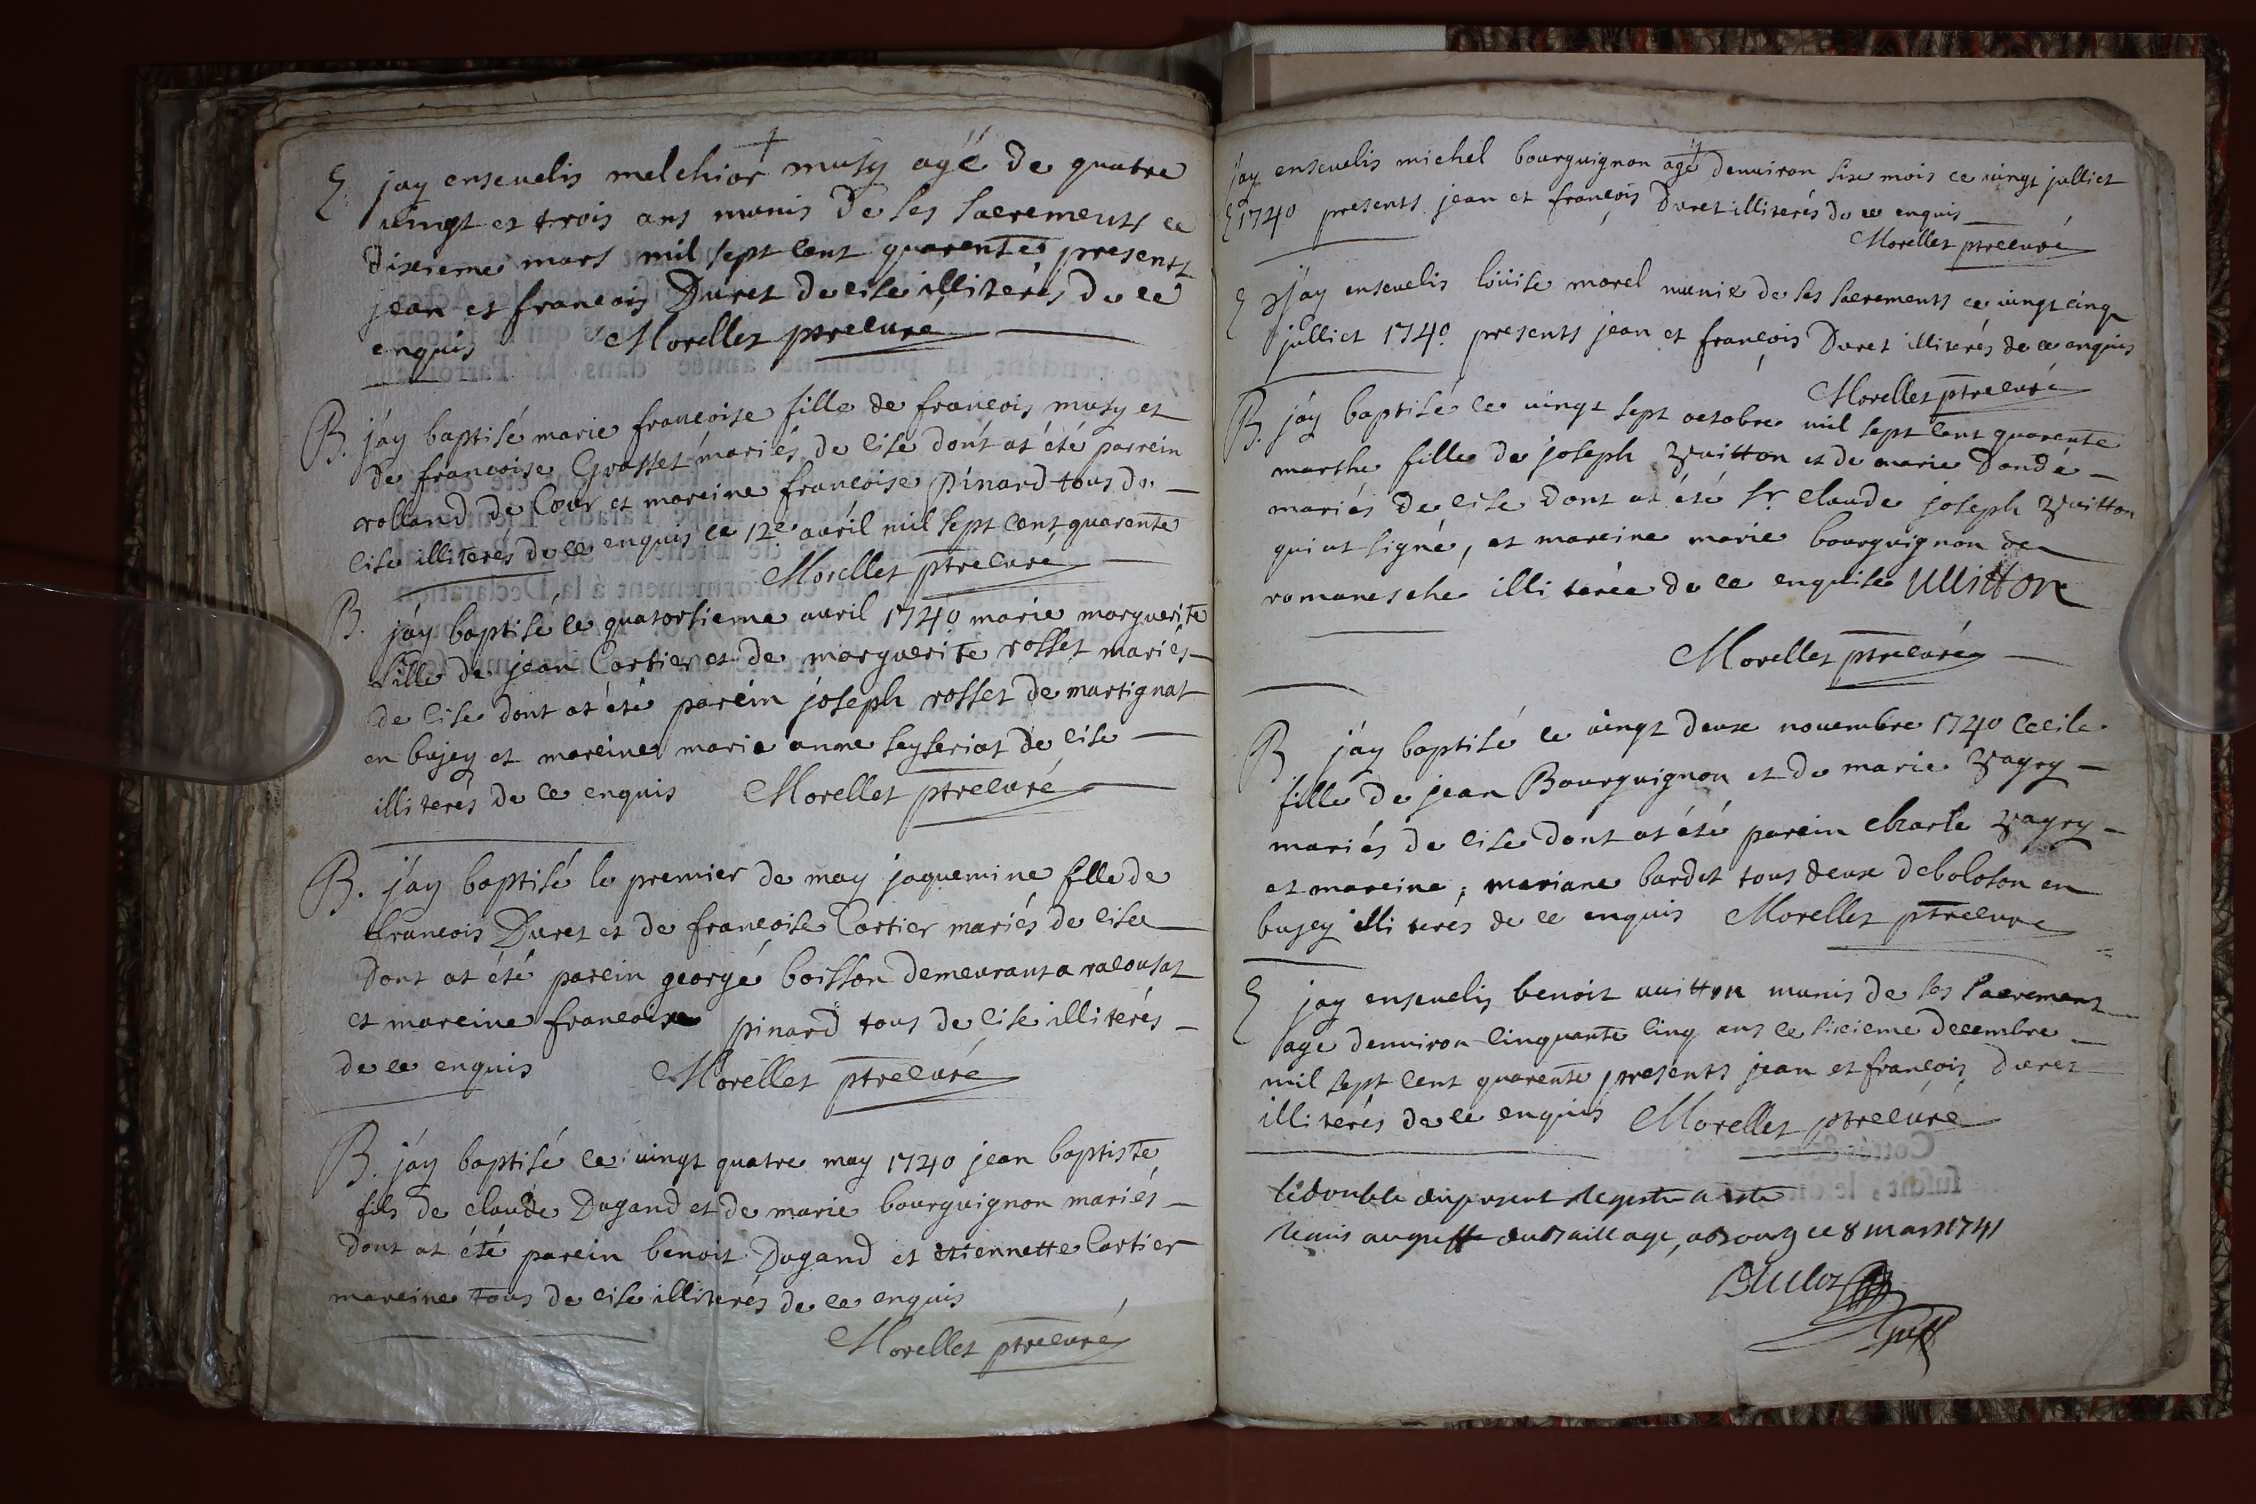 E jay enseuelis melchior musy agé de quatre
uingt et trois ans munis de ses sacrements ce
dixieme mars mil sept cent quarente presents
jean et francois Duret de cise illiterés de ce
enquis Morellet ptre curé
B. jáy baptisé marie francoise fille de francois musy et
de francoise Grasset mariés de cise dont at été parrein
rolland de Cour et mareine francoise pinard tous de
cise illiteres de ce enquis ce 12e auril mil sept cent quarente
Morellet ptre curé
B. jáy baptisé le quatorsieme auril 1740 marie marguerite
fille de jean Cartier et de marguerite rosset mariés
de cise dont at été parein joseph rosset de martignat
en bujey et mareine marie anne seyseriat de cise
illiterés de ce enquis Morellet ptre curé
B. jáy baptisé le premier de may jaquemine fille de
francois Duret et de francoise Cartier mariés de cise
dont at été parein george boisson demeurant a racousat
et mareine francoise pinard tous de cise illiterés
de ce enquis Morellet ptre curé
B. jáy baptisé ce uingt quatre may 1740 jean baptiste
fils de claude Dagand et de marie bourguignon mariés
dont at été parein benoit Dagand et etiennette Cartier
mareine tous de cise illiterés de ce enquis
Morellet ptre curé
jay enseuelis michel bourguignon agé denuiron six mois ce uingt julliet
E 1740 presents jean et francois Duret illiterés de ce enquis
Morellet ptre curé
E jay enseuelis loüise morel munie de ses sacrements ce uingt cinq
julliet 1740 presents jean et francois Duret illiterés de ce enquis
Morellet ptre curé
B. jáy baptisé ce uingt sept octobre mil sept cent quarente
marthe fille de joseph Vuitton et de marie Dandé
mariés de cise dont at été sr. claude joseph Vuitton
qui at signé, et mareine marie bourguignon de
romanesche illiterée de ce enquise Vuitton
Morellet ptre curé
B jáy baptisé ce uingt deux nouembre 1740 Cecile
fille de jean Bourguignon et de marie Vagry
mariés de cise dont at été parein charle Vagry
et mareine, mariane bardet tous deux de boloson en
bujey illiterés de ce enquis Morellet ptre curé
E jay enseuelis benoit uuitton munis de ses sacrement
agé denuiron cinquante cinq ans ce sixieme decembre
mil sept cent quarente presents jean et francois duret
illiterés de ce enquis Morellet ptre curé
le double du present Registre a esté
Remis au greffe du Bailliage, a Bourg ce 8 mars 1741